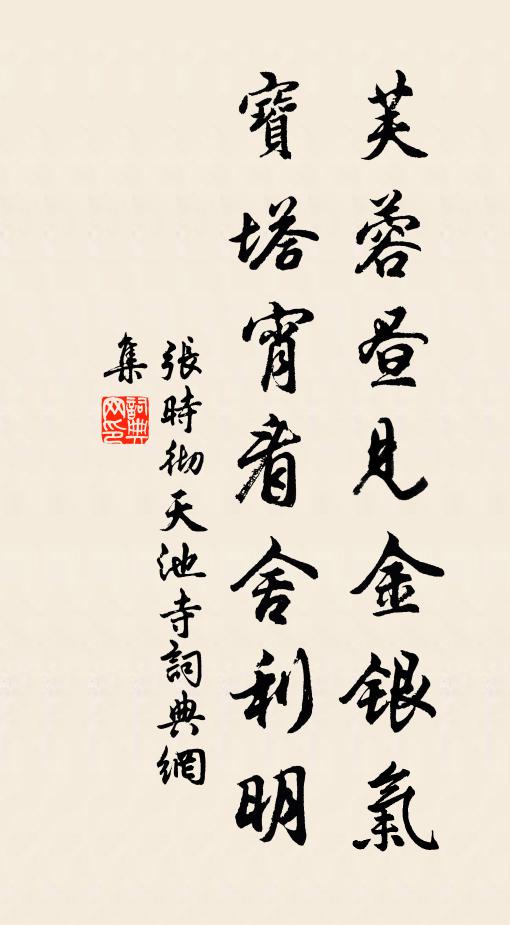 芙蓉昼見金銀氣
寶塔宵看舍利明
張時彻天池寺詞典網
集
詞典网印